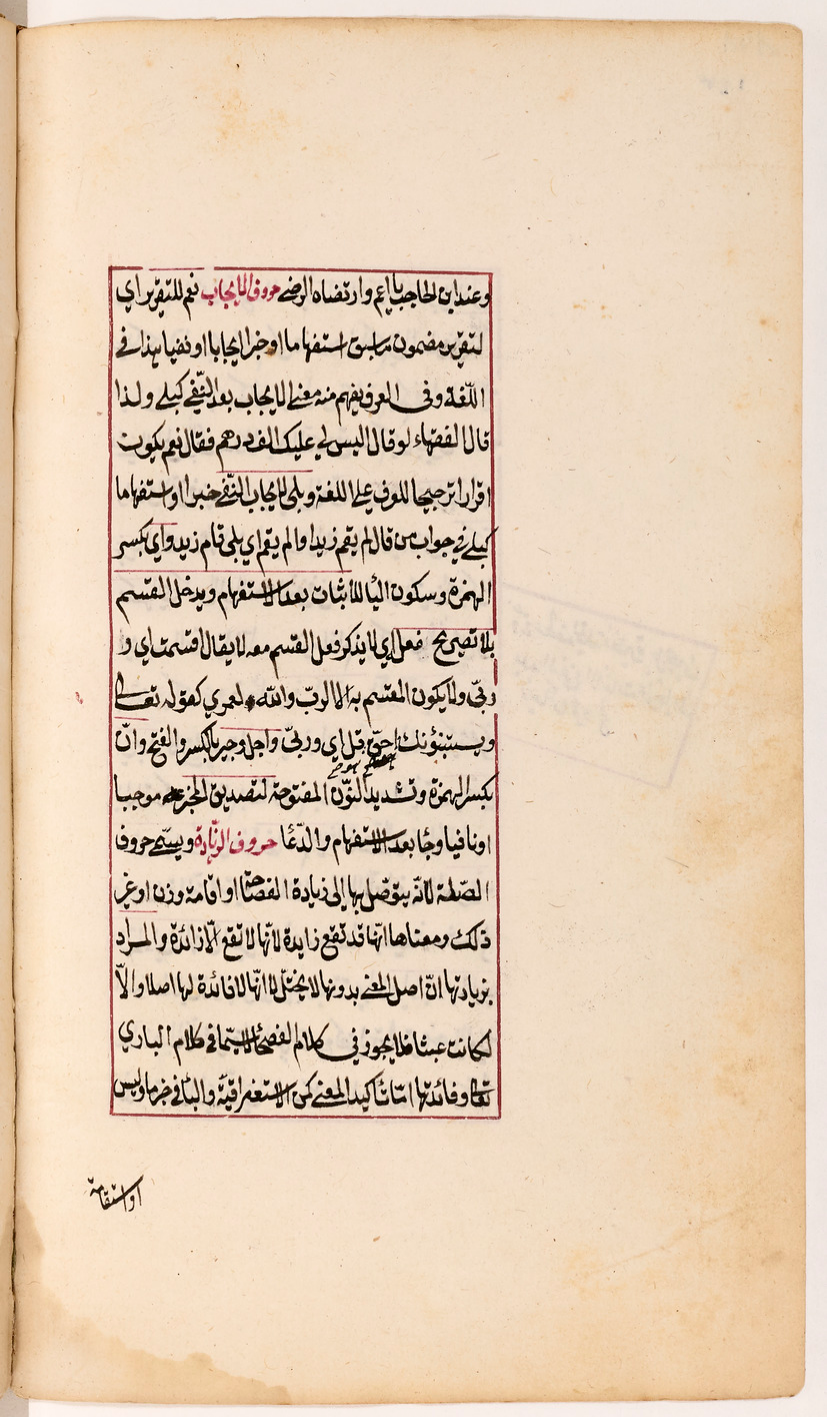 وعند ابن الحاجب يا اعم وارتضاه الرضي حروف الايجاب نعم للتقرير اي
لتقرير مضمون ما سبق استفهاما او خبرا ايجابا او نفيا هذا في
اللّغة وفي العرف يفهم منه معنى الايجاب بعد النّفي كبلى ولذا
قال الفقهاء لو قال اليس لي عليك الف درهم فقال نعم يكون
اقرارا ترجيحا للعرف على اللغة وبلى لايجاب النّفي خبرا او استفهاما
كبلى في جواب من قال لم يقم زيد او الم يقم اي بلى قام زيد واي بكسر
الهمزة وسكون اليا للاثبات بعد الاستفهام ويدخل القسم
بلا تصريح فعل اي لا يذكر فعل القسم معه لا يقال اقسمت اي و
ربّي ولا يكون المقسم به الا الربّ والله ولعمري كقوله تعالى
ويستنبؤنك احقّ هو قل اي وربّي واجل وجير بالكسر والفتح وانّ
بكسر الهمزة وتشديد النّون المفتوحة لتصديق المخبر موجبا
او نافيا وجا بعد الاستفهام والدّعا حروف الزّيادة ويسمّى حروف
الصّلة لانّه يتوصّل بها الى زيادة الفصاحة او اقامة وزن او غير
ذلك ومعناها انّها قد تقع زايدة لا انّها لا تقع الّا زائدة والمراد
بزيادتها انّ اصل المعنى بدونها لا يختلّ لا انّها لا فائدة لها اصلا والّا
لكانت عبثا فلا يجوز في كلام الفصحا لا سيّما في كلام الباري
تعالى وفائدتها امّا تاكيد المعنى كمن الاستغراقيّة والبا في خبر ما وليس
او استقامة